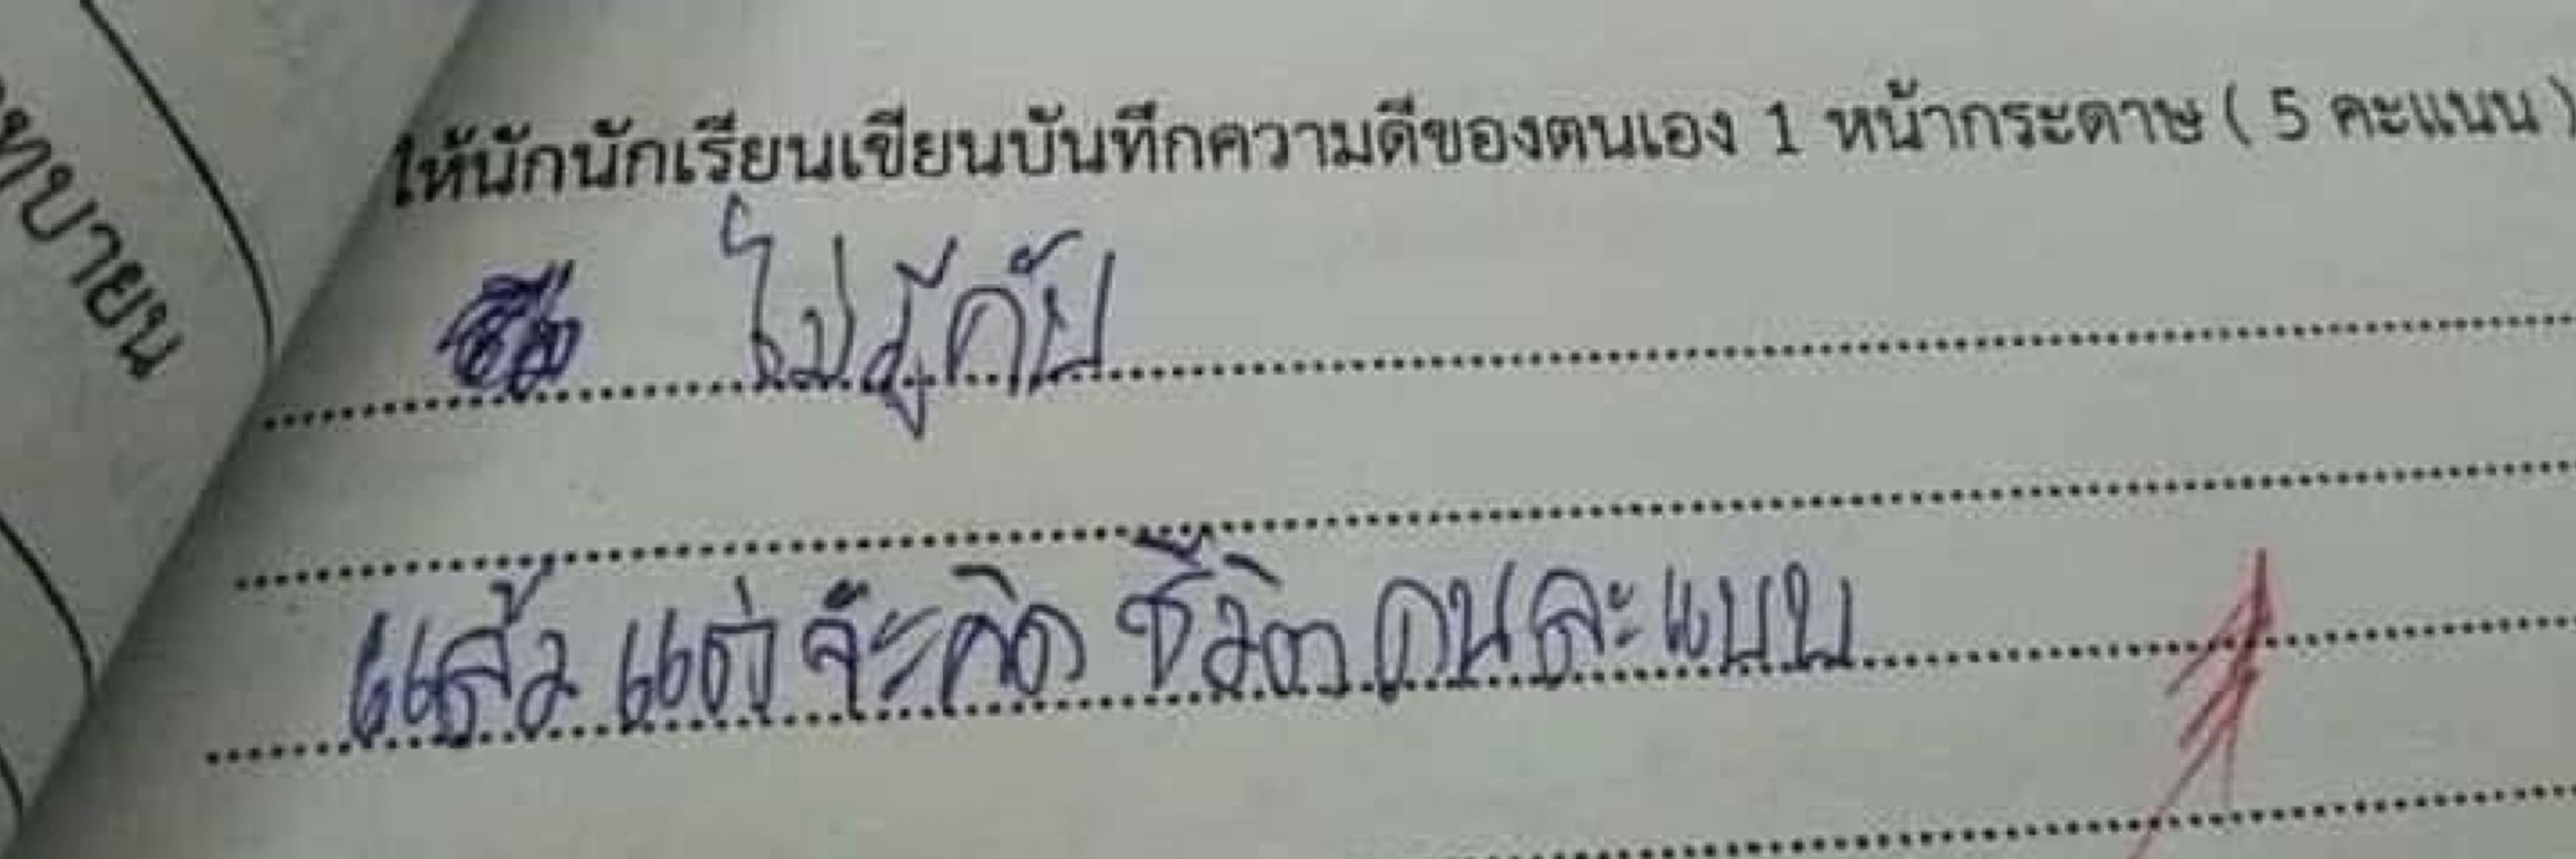 ให้นักนักเรียนเขียนบันทึกความดีของตนเอง 1 หน้ากระดาษ ( 5 คะแนน )
ไม่รู้คับ
แล้ว แต่ จะ คิด ชีวิต คน ละ แบบ